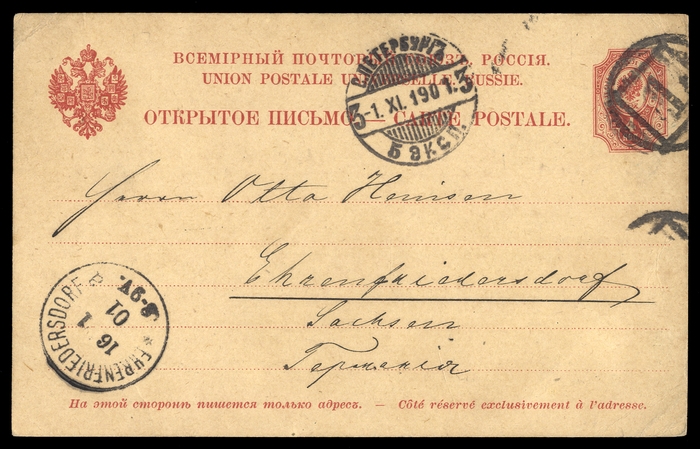 ВСЕМІРНЫЙ ПОЧТОВЫЙ СОЮЗЪ. РОССІЯ.
UNION POSTALE UNIVERSELLE. RUSSIE.
ОТКРЫТОЕ ПИСЬМО — CARTE POSTALE.
С. ПЕТЕРБУРГЪ
3 -1. XI. 1901. 3
Б ЭКСП.
1
Herrn Otto Hensen
Ehrenfriedersdorf
Sachsen
Германія
* EHRENFRIEDERSDORF
16 1
01
8-9V.
На этой сторонѣ пишется только адресъ. — Côté réservé exclusivement à l'adresse.